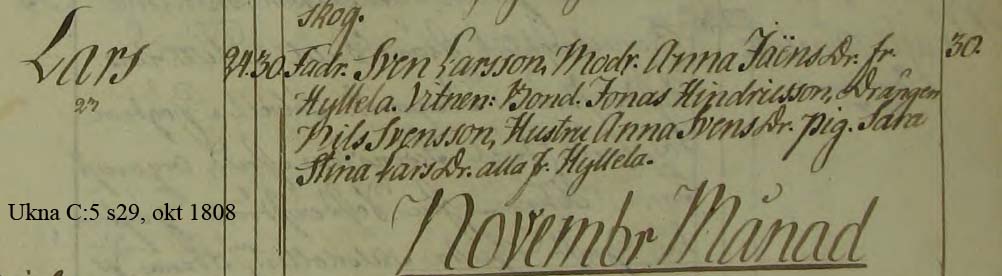 skog.
Lars 24. 30. Fadr. Sven Larsson, Modr. Anna Jaëns Dr. fr. 30.
Hyllela. Vitnen: Bond. Jonas Hindricsson, Drängen
23 Nils Svensson, Hustru Anna Svens Dr. pig. Sara
Stina Lars Dr. alla fr. Hyllela.
Ukna C:5 s29, okt 1808
Novembr Månad